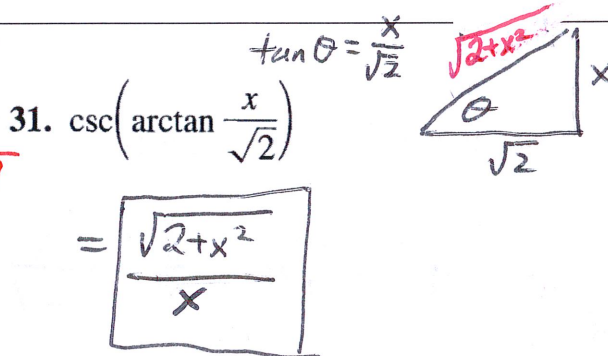 tan θ = x/√2
√2+x²
x
θ
√2
31. csc(arctan x/√2)
= √2+x²/x